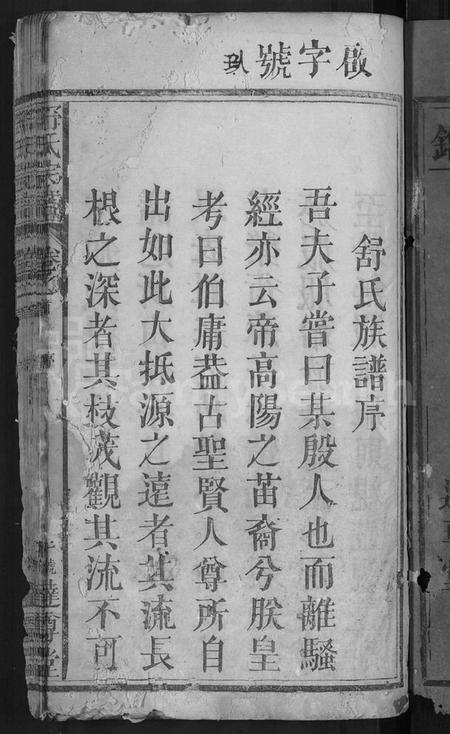 啟字號玖
舒氏族譜序
吾夫子嘗曰某殷人也而離騷
經亦云帝高陽之苗裔兮朕皇
考曰伯庸葢古聖賢人尊所自
出如此大抵源之遠者其流長
根之深者其枝茂觀其流不可
舒氏族譜